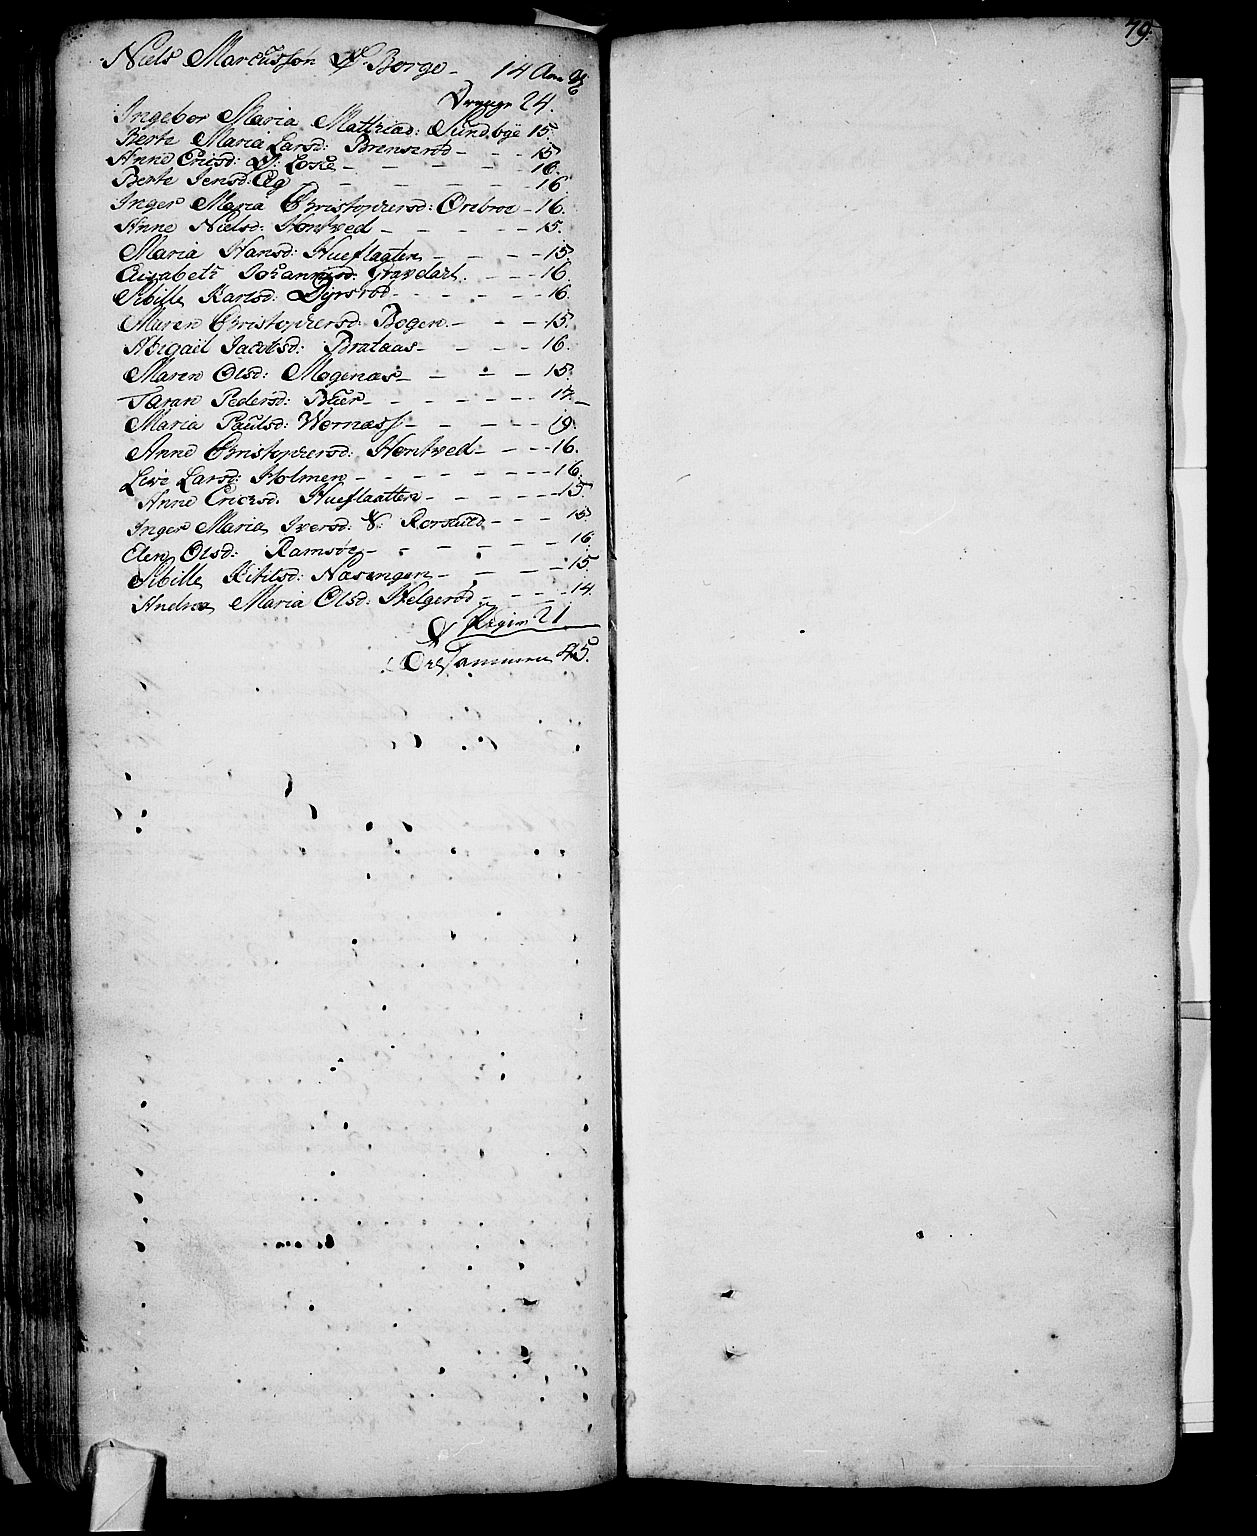 Niels Marcusson N: Borge - 14 Aar
Drenge 24.
Ingebor Maria Matthiasd: Sundbÿe 15.
Berte Maria Larsd: Brenserød - - - 15
Anne Ericsd: - - - 16.
Berte Jensd: Eg - - - - - 16
Inger Maria Christophersd: Örebroe - 16.
Anne Nielsd: Hontved - - - - - 15.
Maria Hansd: Hueflaaten - - - - 15
Elisabeth Johannisd: Gravdahl - - - 16.
Sibille Karlsd: Dyrsrød - - - - - 16.
Maren Christophersd: Bogen - - - 15.
Abigail Jacobsd: Brataas - - - - 16.
Maren Olsd: Moginæs - - - - 15.
Taran Pedersd: Bäer - - - - - - 17. -
Maria Paulsd: Wernæss - - - - - 19.
Anne Christophersd: Hontved - - - 16.
Live Larsd: Holmen - - - - - - 16.
Anne Ericksd: Hueflaatten - - - - 15
Inger Maria Iversd: N: - - - 15
Elen Olsd: Ramsöe - - - - - - 16
Sibille Kitilsd: Næsengen - - - - 15.
Andrea Maria Olsd: Helgerød - - - 14.
Pigen 21
Tilsammen 45.
79.